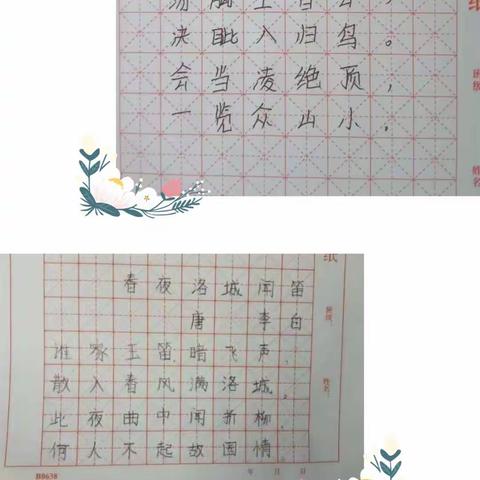 荡胸生曾云，
决眦入归鸟。
会当凌绝顶，
一览众山小。
纸
班级
姓名
纸
春夜洛城闻笛
唐 李白
谁家玉笛暗飞声，
散入春风满洛城。
此夜曲中闻折柳，
何人不起故园情。
班级
姓名
B8638 年 月 日